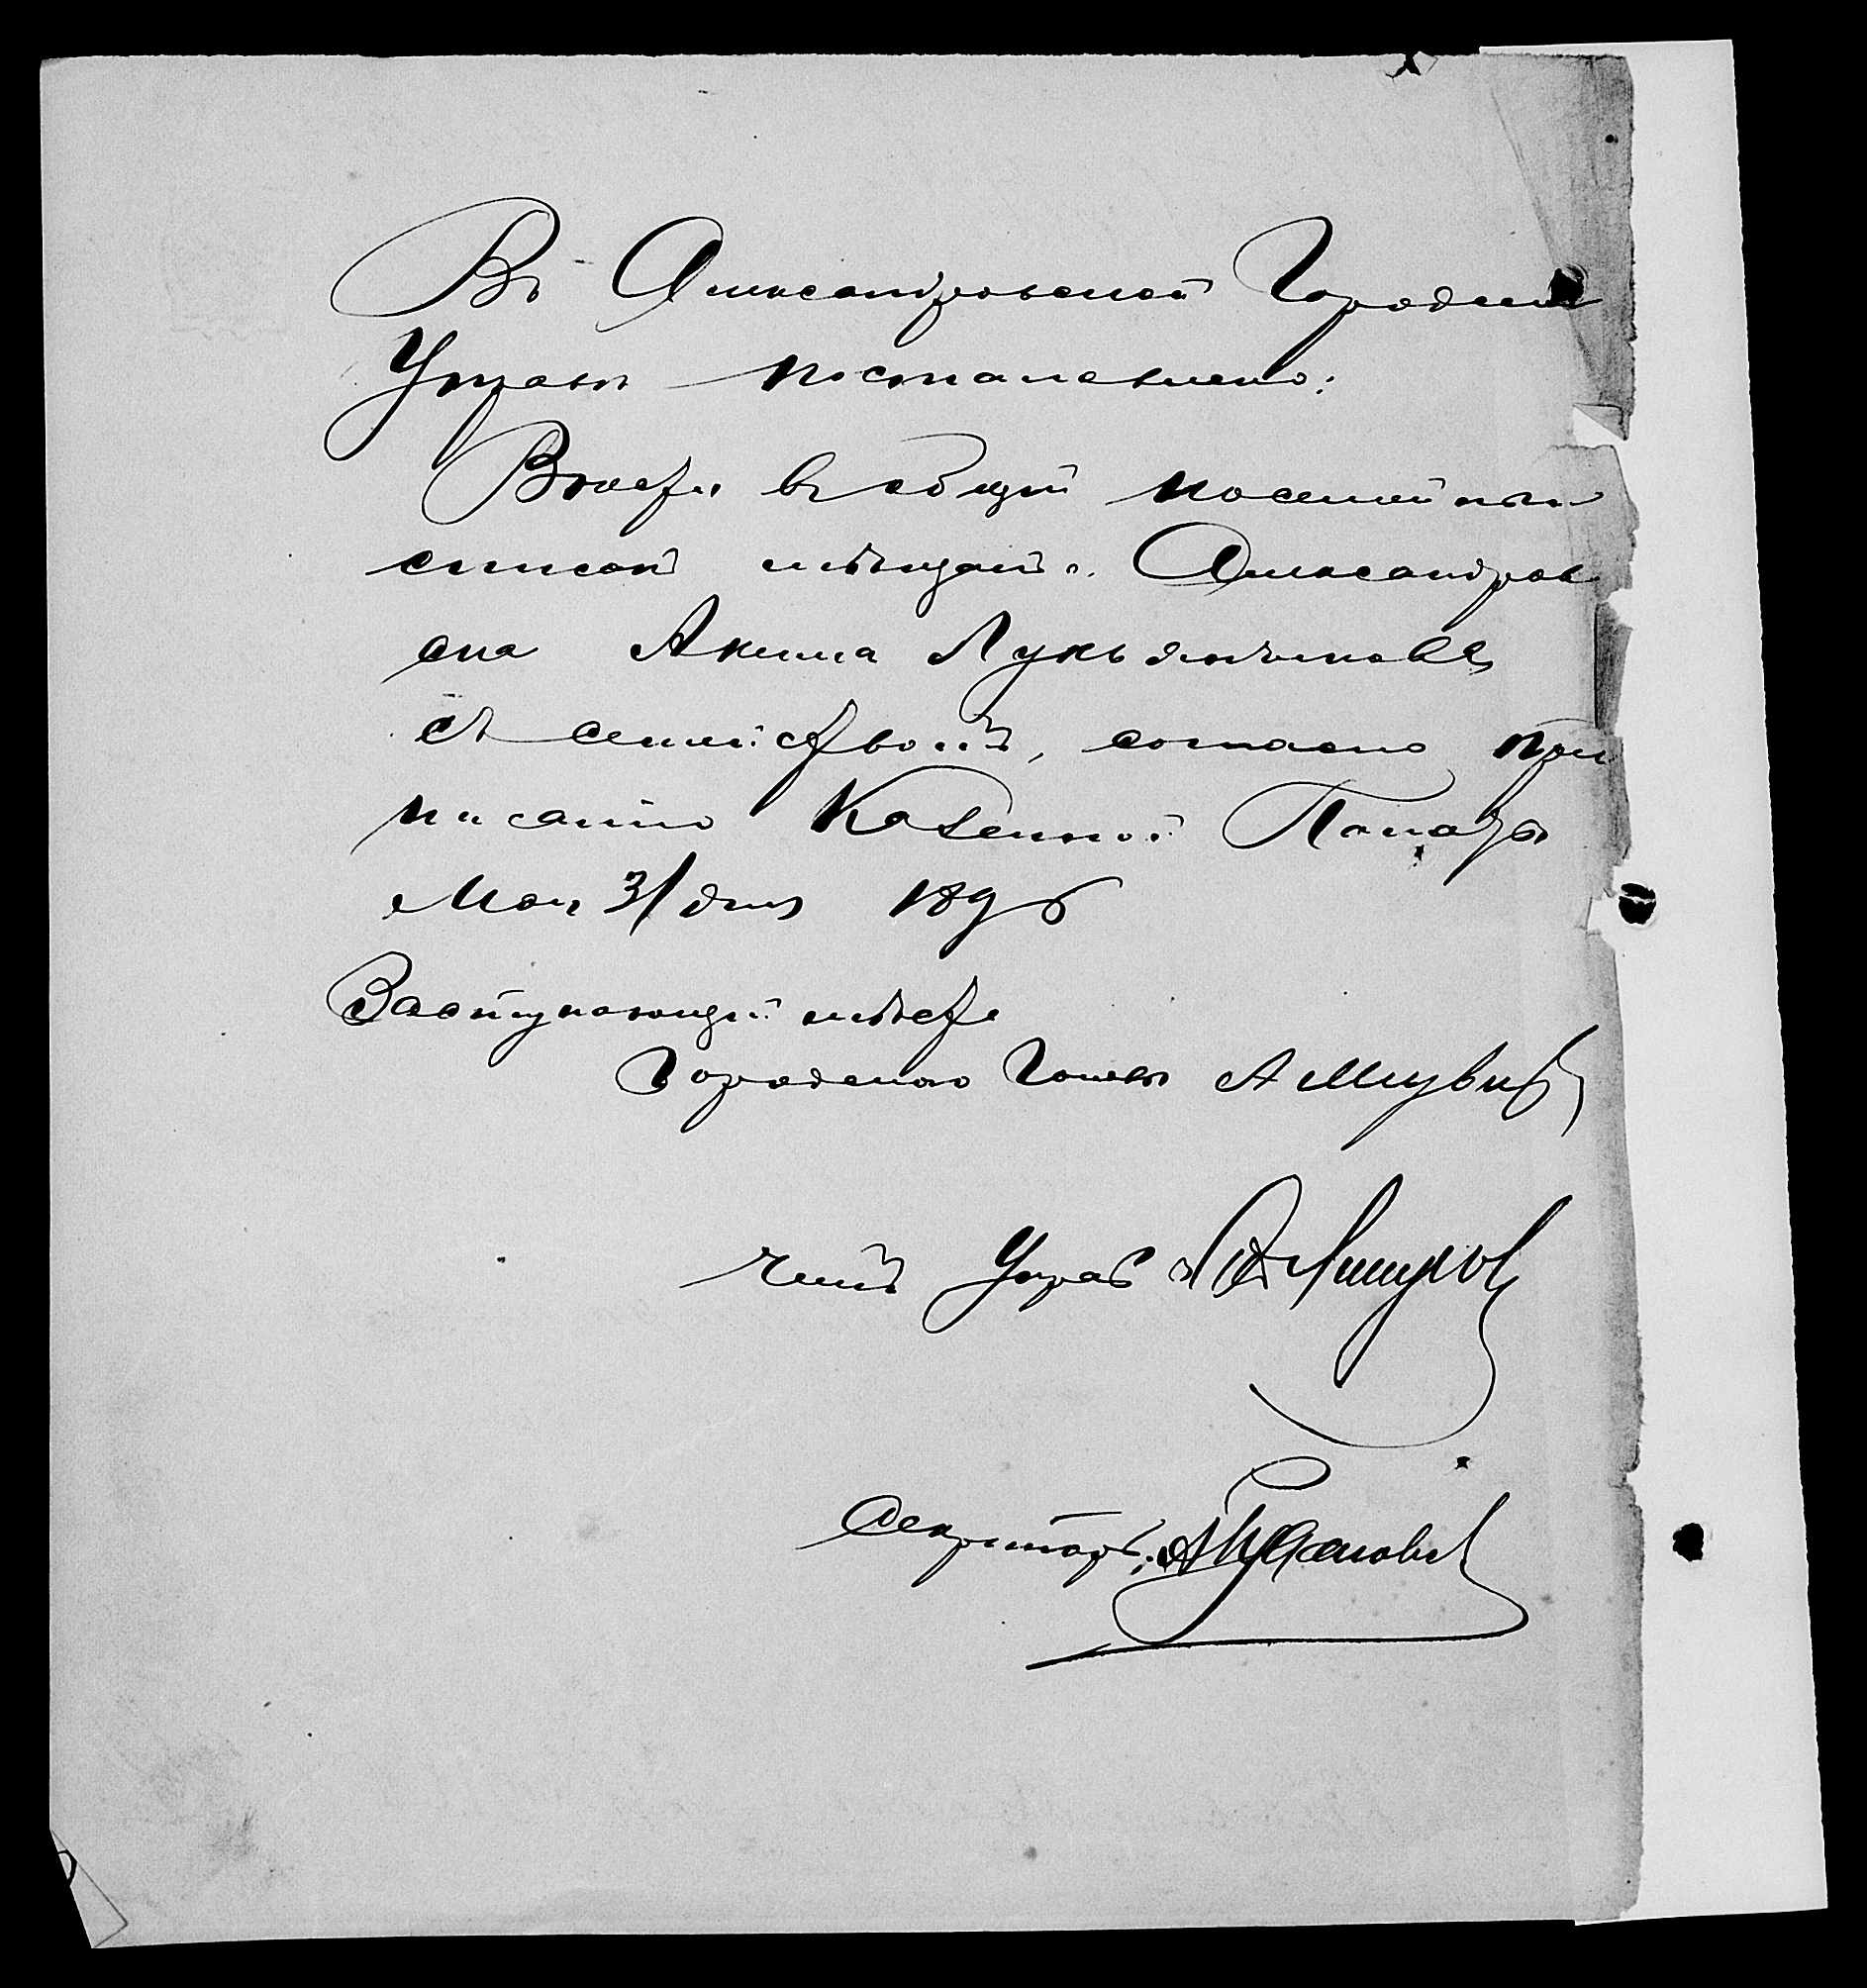 Въ Александровской Городской
Управѣ постановлено:
Внести въ общій посемейный
списокъ мѣщанъ г. Александров
ска Акима Лукьянчикова
съ семействомъ, согласно пред
писанію Казенной Палаты
Мая 31 дня 1896
Заступающій мѣсто
Городского Головы А
Членъ Управы
Секретарь: